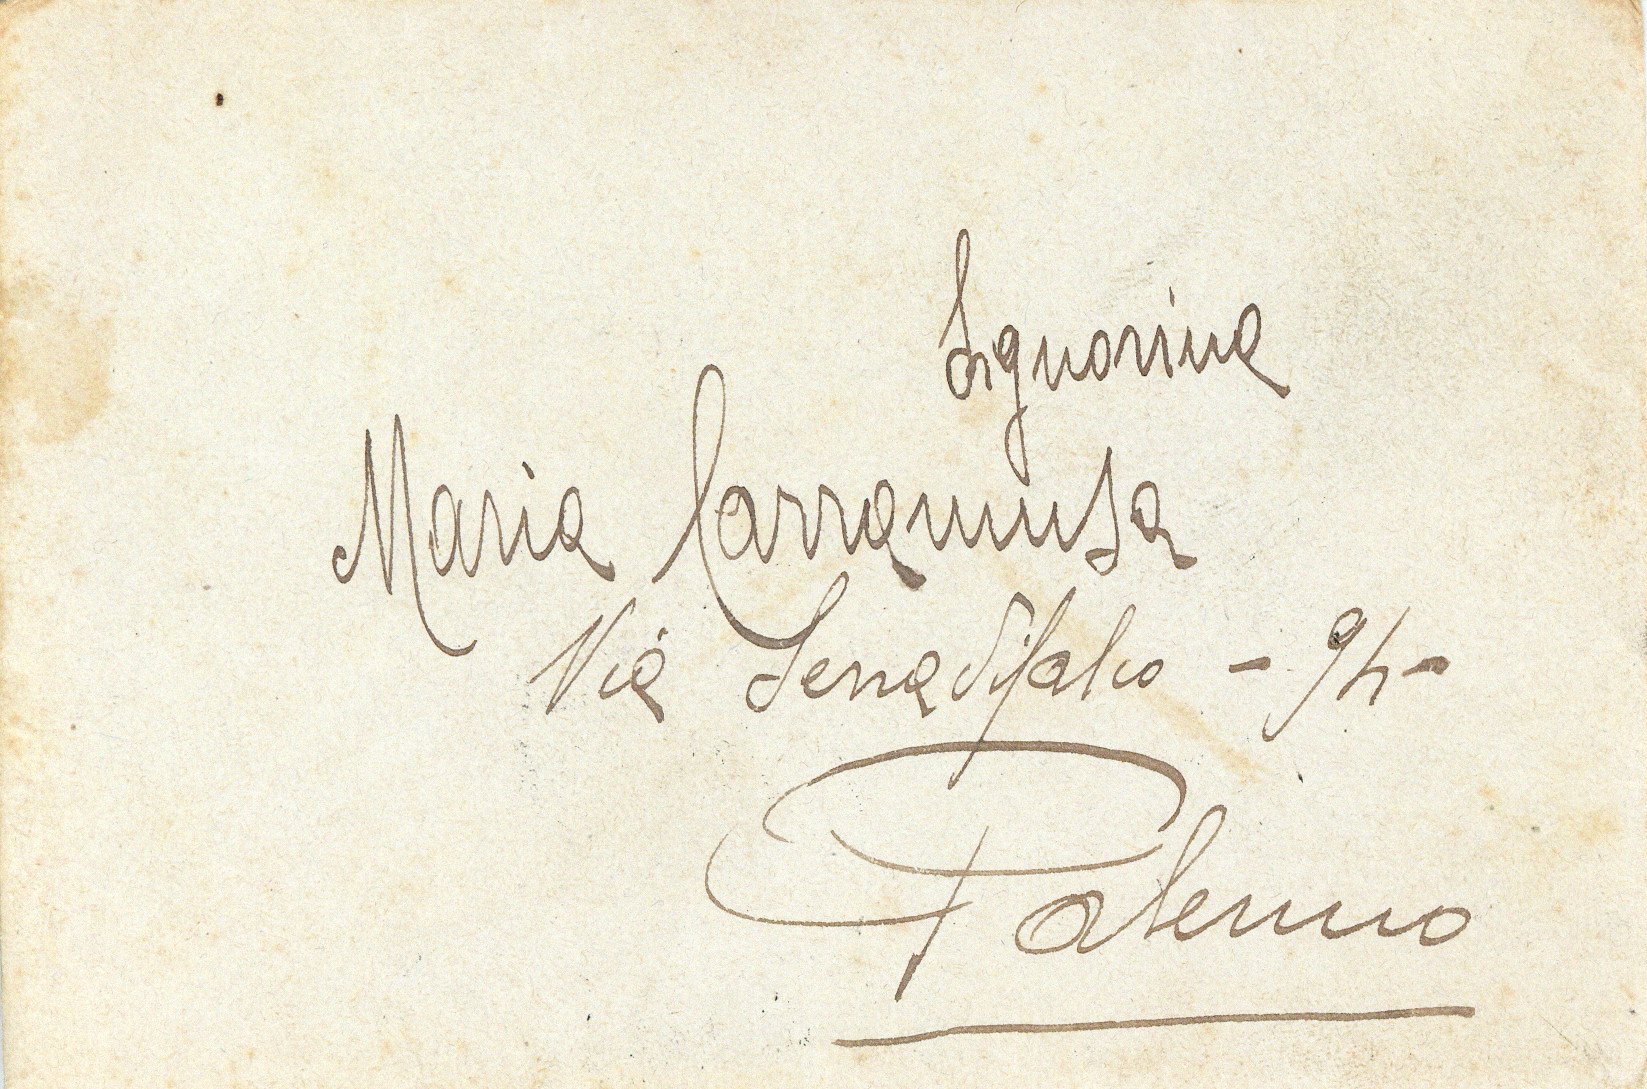 Signorina
Maria Carramusa
Via Serradifalco - 94 -
Palermo